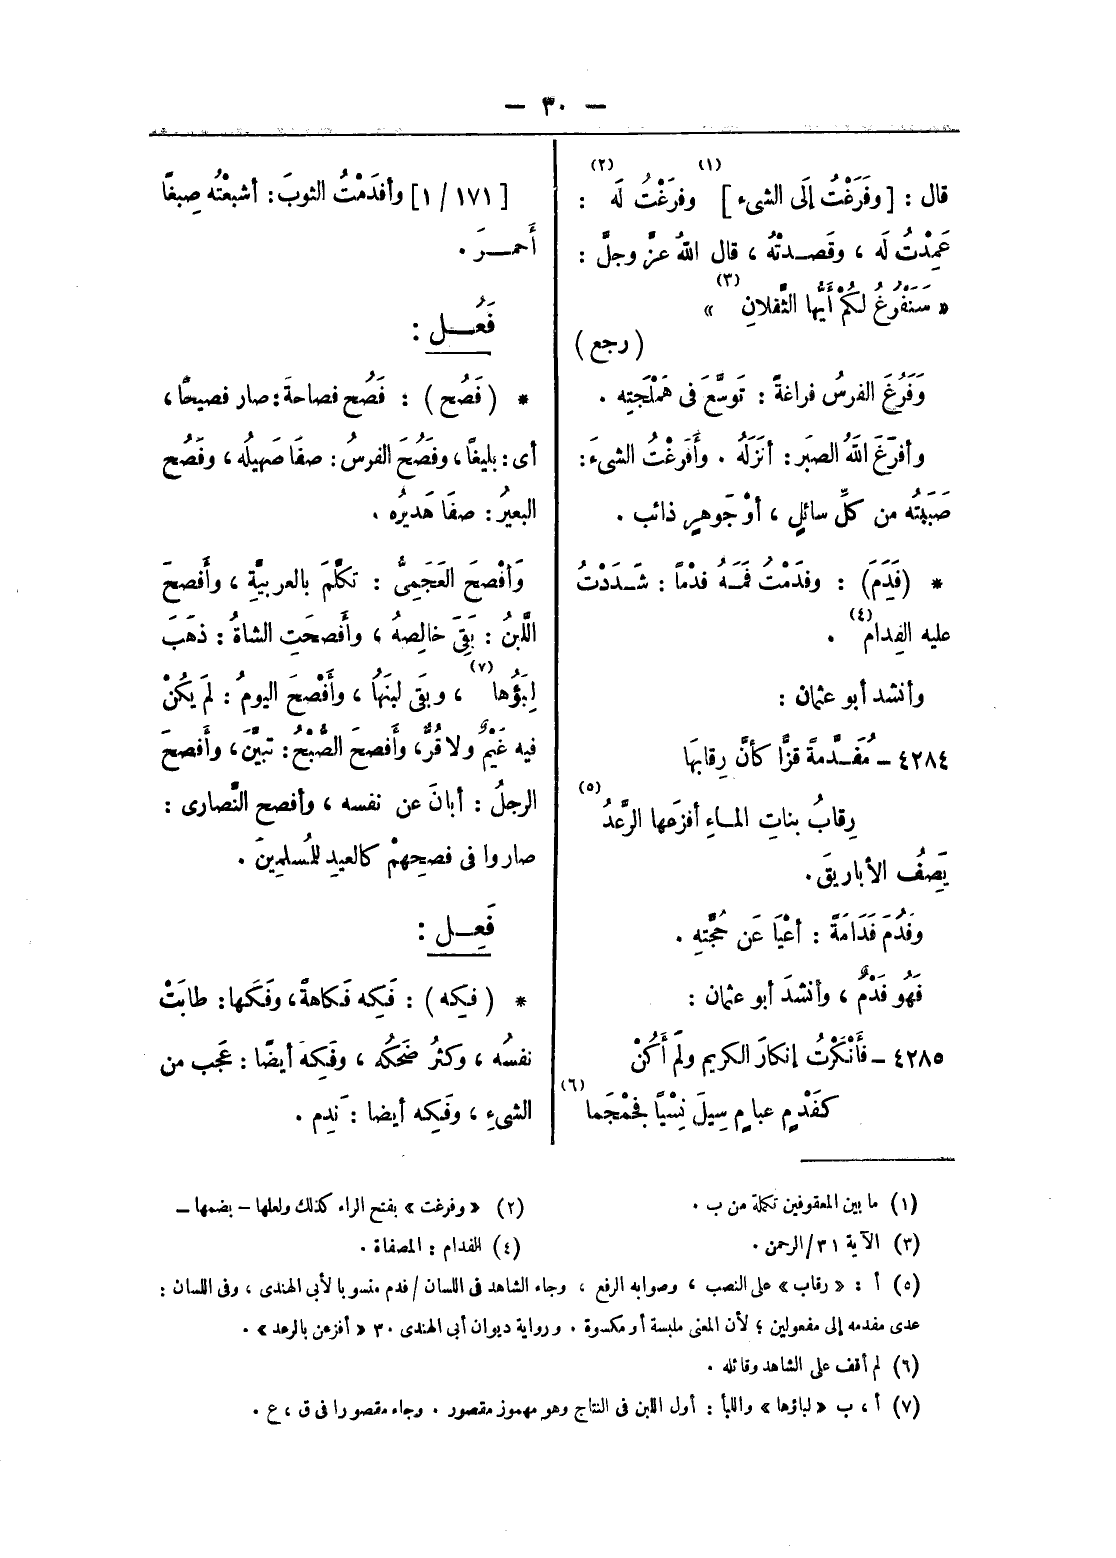 — ٣٠ —
قال : [ وفَرَغْتُ إلَى الشىء ] (١) وفرَغْتُ لَه (٢) :
عَمِدْتُ لَه ، وقَصـدتْهُ ، قال اللهُ عزَّ وجلَّ :
« سَنَفْرُغُ لَكُمْ أَيُّها الثَّقلانِ (٣) »
( رجع )
وَفَرُغَ الفرسُ فراغةً : تَوسَّعَ فى هَمْلَجَتِه .
وأفرَغَ اللهُ الصبَر : أنزَلَهُ . وأَفرغْتُ الشىءَ :
صَبَبَتُه من كلِّ سائلٍ ، أوْ جَوهرٍ ذائب .
* (فَدَم) : وفدَمْتُ فَمَـهُ فدْماً : شَـدَدْتُ
عليه الفِدام (٤) .
وأنشد أبو عثمان :
٤٢٨٤ – مُفَـدَّمةً قزًّا كأنَّ رِقابَها
رِقابُ بناتِ المـاءِ أفزعَها الرَّعْدُ (٥)
يَصِفُ الأباريقَ .
وفَدُمَ فَدَامَةً : أعْيَا عَن حُجَّتِهِ .
فَهُو فَدْمٌ ، وأنشدَ أبو عثمان :
٤٢٨٥ – فَأَنْكَرْتُ إنكارَ الكريم ولَم أَكُنْ
كفَدْمٍ عبامٍ سِيلَ نِسْيًا فَجمْجَما (٦)
[ ١٧١ / ١] وأفدَمْتُ الثوبَ: أشبعْتُه صِبغًا
أَحمـرَ .
فَعُـل :
* ( فَصُح ) : فَصُح فصاحةَ : صار فصيحًا ،
أى : بليغًا ، وفَصُحَ الفرسُ : صفَا صَهيلُه ، وفَصُح
البعيُر : صفَا هَديرُه .
وَأفْصحَ العَجَمِىُّ : تكلَّمَ بالعربيَّةِ ، وأَفصحَ
اللَّبنُ : بَقِىَ خالِصهُ ، وأَفصحَتِ الشاةُ : ذهَبَ
لِبَؤُها (٧) ، وبقَى لبنَهَا ، وأَفْصحَ اليومُ : لَم يَكُنْ
فيه غَيْمٌ ولا قُرٌّ، وأَفصحَ الصُّبْحُ : تبيَّنَ ، وأَفصحَ
الرجلُ : أبانَ عن نفسه ، وأفصح النَّصارى :
صاروا فى فصحِهمْ كالعيدِ للمُسلمينَ .
فَعِـل :
* ( فكِه ) : فَكِه فَكاهةً ، وفَكَها : طابَتْ
نفسُه ، وكثرُ ضَحَكُه ، وفكِهَ أيضًا : عَجَب من
الشىءِ ، وفَكِه أيضا : نَدِم .
(١) ما بين المعقوفين تكملة من ب .
(٢) « وفرغت » بفتح الراء كذلك ولعلها – بضمها –
(٣) الآية ٣١/الرحمن .
(٤) الفدام : المصفاة .
(٥) أ : « رقاب » على النصب ، وصوابه الرفع ، وجاء الشاهد فى اللسان / فدم منسوبا لأبى الهندى ، وفى اللسان :
عدى مفدمه إلى مفعولين ؛ لأن المعنى ملبسة أو مكسوة . ورواية ديوان أبى الهندى ٣٠ « أفزعن بالرعد » .
(٦) لم أقف على الشاهد وقائله .
(٧) أ ، ب « لباؤها » واللبأ : أول اللبن فى النتاج وهو مهموز مقصور . وجاء مقصورا فى ق ، ع .